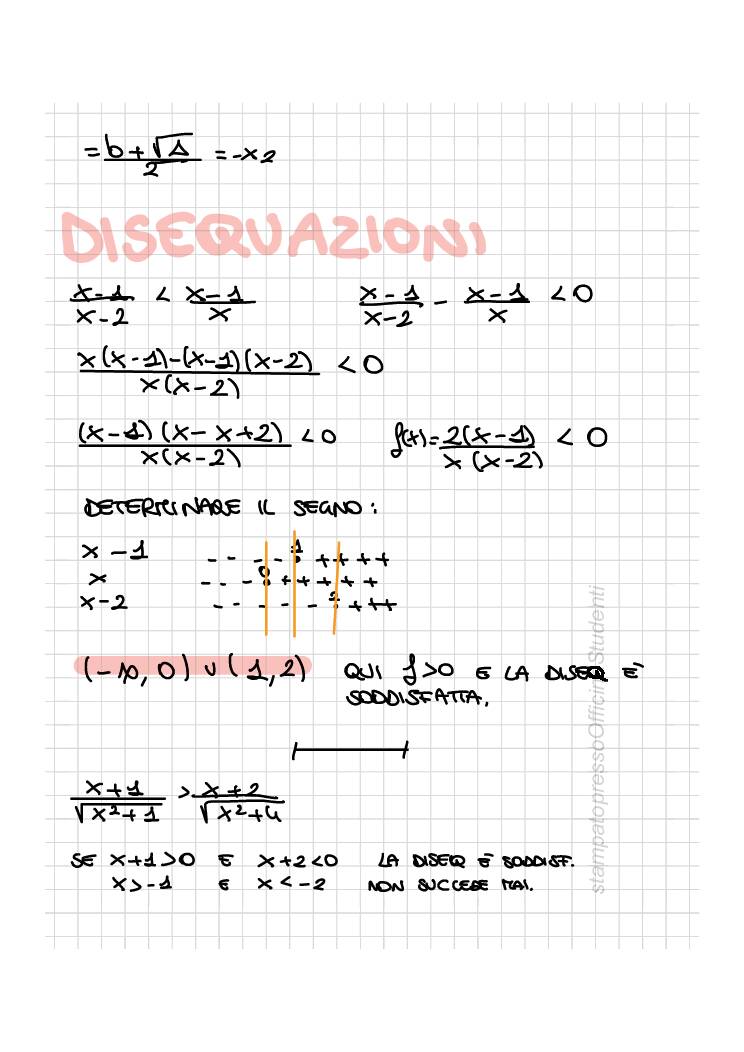 = (b + √Δ)/2 = -x2
DISEQUAZIONI
(x-1)/(x-2) < (x-1)/x    (x-1)/(x-2) - (x-1)/x < 0
(x(x-1)-(x-1)(x-2))/(x(x-2)) < 0
((x-1)(x-x+2))/(x(x-2)) < 0    f(x)= (2(x-1))/(x(x-2)) < 0
DETERMINARE IL SEGNO:
x-1    - - - - 1 + + + +
x    - - - 0 + + + + + +
x-2    - - - - - 2 + + +
(-∞, 0) ∪ (1, 2)    QUI f>0 E LA DISEQ È
SODDISFATTA.
(x+1)/√(x²+1) > (x+2)/√(x²+4)
SE x+1>0 E x+2<0    LA DISEQ È SODDISF.
x>-1 E x<-2    NON SUCCEDE MAI.
stampatopressoOfficinaStudenti